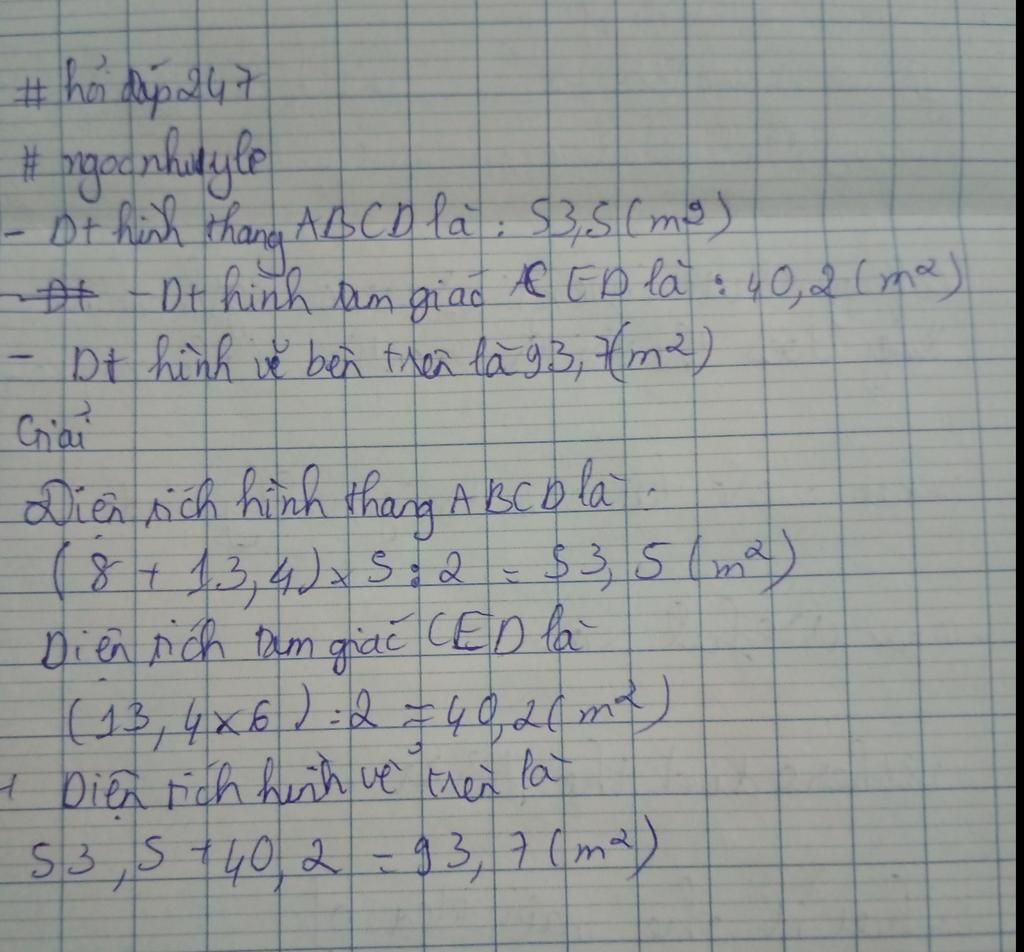 # hỏi đáp 247
# ngocnhuyle
- Dt hình thang ABCD là : 53,5 (m²)
- Dt hình tam giác CED là : 40,2 (m²)
- Dt hình vẽ bên trên là 93,7 (m²)
Giải
Diện tích hình thang ABCD là.
(8 + 13,4) x 5 : 2 = 53,5 (m²)
Diện tích tam giác CED là
(13,4 x 6) : 2 = 40,2 (m²)
Diện tích hình vẽ trên là
53,5 + 40,2 = 93,7 (m²)